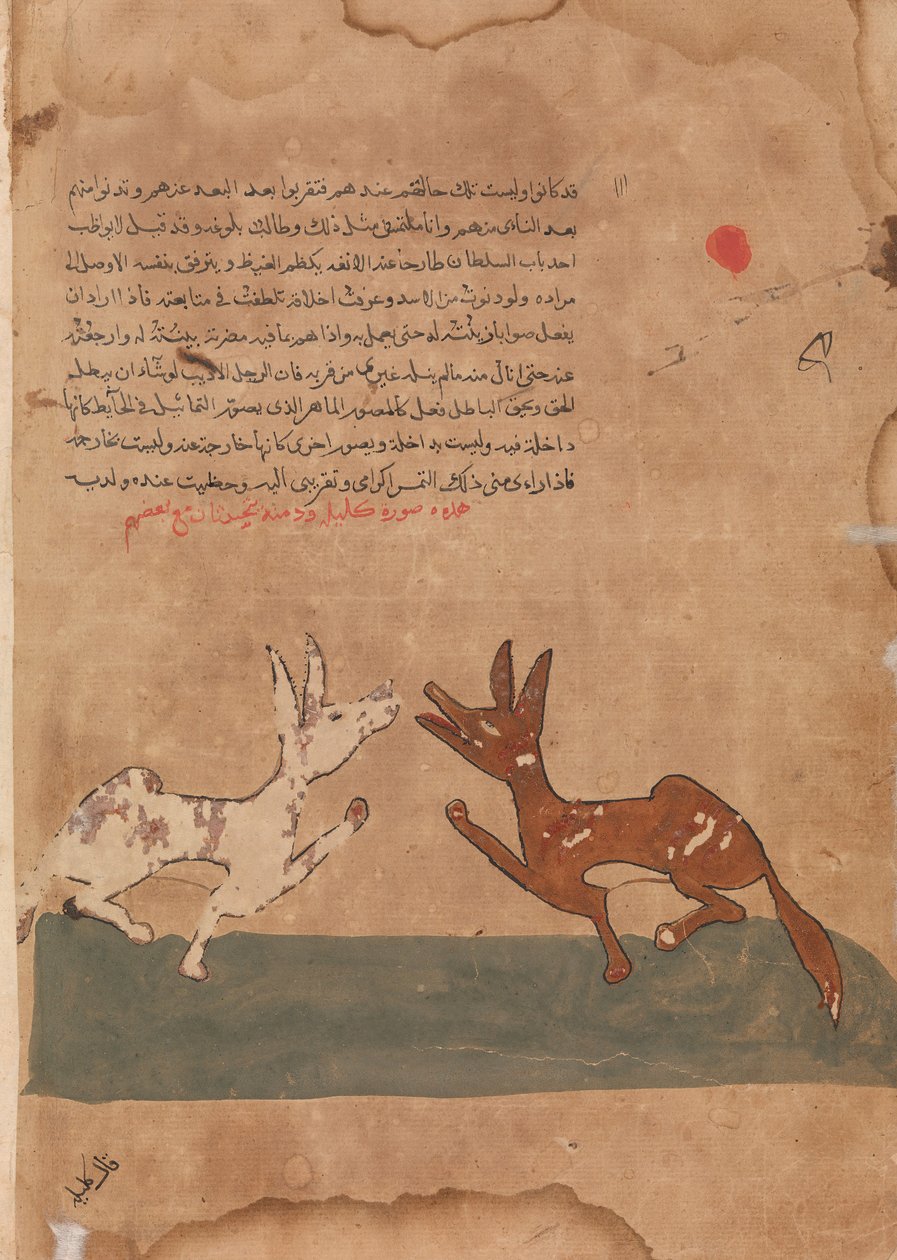 قد كانوا وليست تلك حالهم عندهم فتقربوا بعد البعد عنهم وتدنوا منهم
بعد الناءى منهم وانا ملتمس مثل ذلك وطالب بلوغه وقد قيل لا يواظب
احد باب السلطان طارحا عنه الانفه يكظم الغيظ ويترفق بنفسه الا وصل الى
مراده ولو دنوت من الاسد وعرفت اخلاقه تلطفت في متابعته فاذا اراد ان
يفعل صوابا زينته له حتى يعمل به واذا هم بما فيه مضرته بينته له وارجعته
عنه حتى انال منه مالم ينله غيري من قربه فان الرجل الاديب لو شاء ان يبطل
الحق ويحق الباطل فعل كالمصور الماهر الذى يصور التماثيل في الحآيط كانها
داخلة فيه وليست بداخلة ويصور اخرى كانها خارجة عنه وليست بخارجه
فاذا راءى منى ذلك التمس اكرامى وتقريبى اليه وحظيت عنده ولديه
هذه صورة كليله ودمنه يتحدثان مع بعضهم
قال كليله